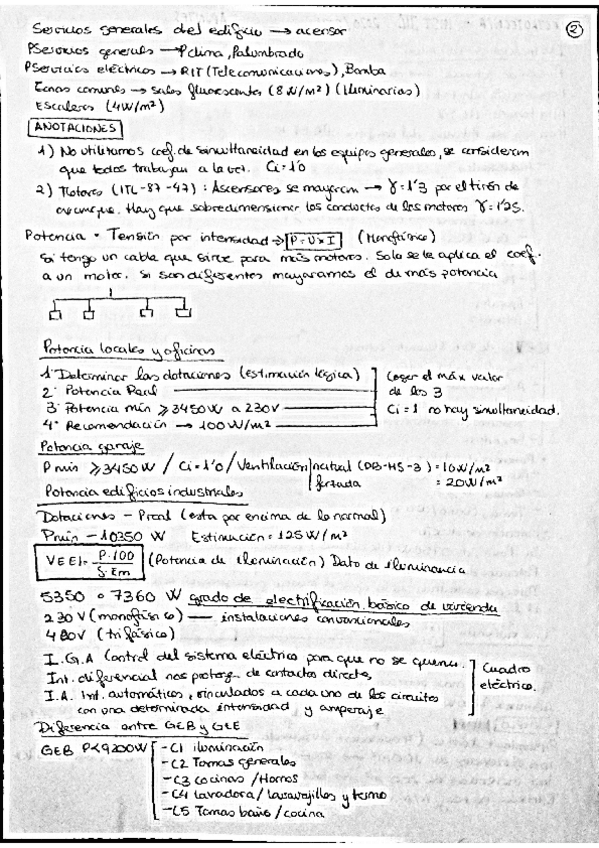 ②
Servicios generales del edificio → acensor
PServicios generales → Pclima, Palumbrado
PServicios eléctricos → RIT (Telecomunicaciones), Bomba
Zonas comunes → salas fluorescentes (8W/m²) (luminarias)
Escaleras (4W/m²)
ANOTACIONES
1) No utilizamos coef. de simultaneidad en los equipos generales, se consideran
que todos trabajan a la vez. Ci=1'0
2) Motores (ITC-BT-47): Ascensores se mayoran → γ=1'3 por el tirón de
arranque. Hay que sobredimensionar los conductos de los motores γ=1'25.
Potencia = Tensión por intensidad → P=U×I (Monofásico)
Si tengo un cable que sirve para más motores. Solo se le aplica el coef.
a un motor. Si son diferentes mayoramos el de más potencia
Potencia locales y oficinas
1º Determinar las dotaciones (estimación lógica)
2º Potencia Real
3º Potencia mín ≥ 3450W a 230V
4º Recomendación → 100W/m²
Coger el máx valor
de los 3
Ci=1 no hay simultaneidad.
Potencia garaje
Pmin ≥3450W / Ci=1'0 / Ventilación natural (DB-HS-3) = 10W/m²
forzada = 20W/m²
Potencia edificios industriales
Dotaciones - Preal (esta por encima de lo normal)
Pmin - 10350 W Estimación = 125W/m²
VEEI = P·100 / S·Em (Potencia de iluminación) Dato de iluminancia
5350 o 7360 W grado de electrificación básico de vivienda
230V (monofásico) — instalaciones convencionales
400V (trifásico)
I.G.A Control del sistema eléctrico para que no se queme.
Int. diferencial nos protege de contactos directos
I.A. Int. automáticos, vinculados a cada uno de los circuitos
con una determinada intensidad y amperaje
Cuadro
eléctrico.
Diferencia entre GEB y GEE
GEB P<9200W
-C1 iluminación
-C2 Tomas generales
-C3 cocinas / Hornos
-C4 lavadora / lavavajillos y termo
-C5 Tomas baño / cocina